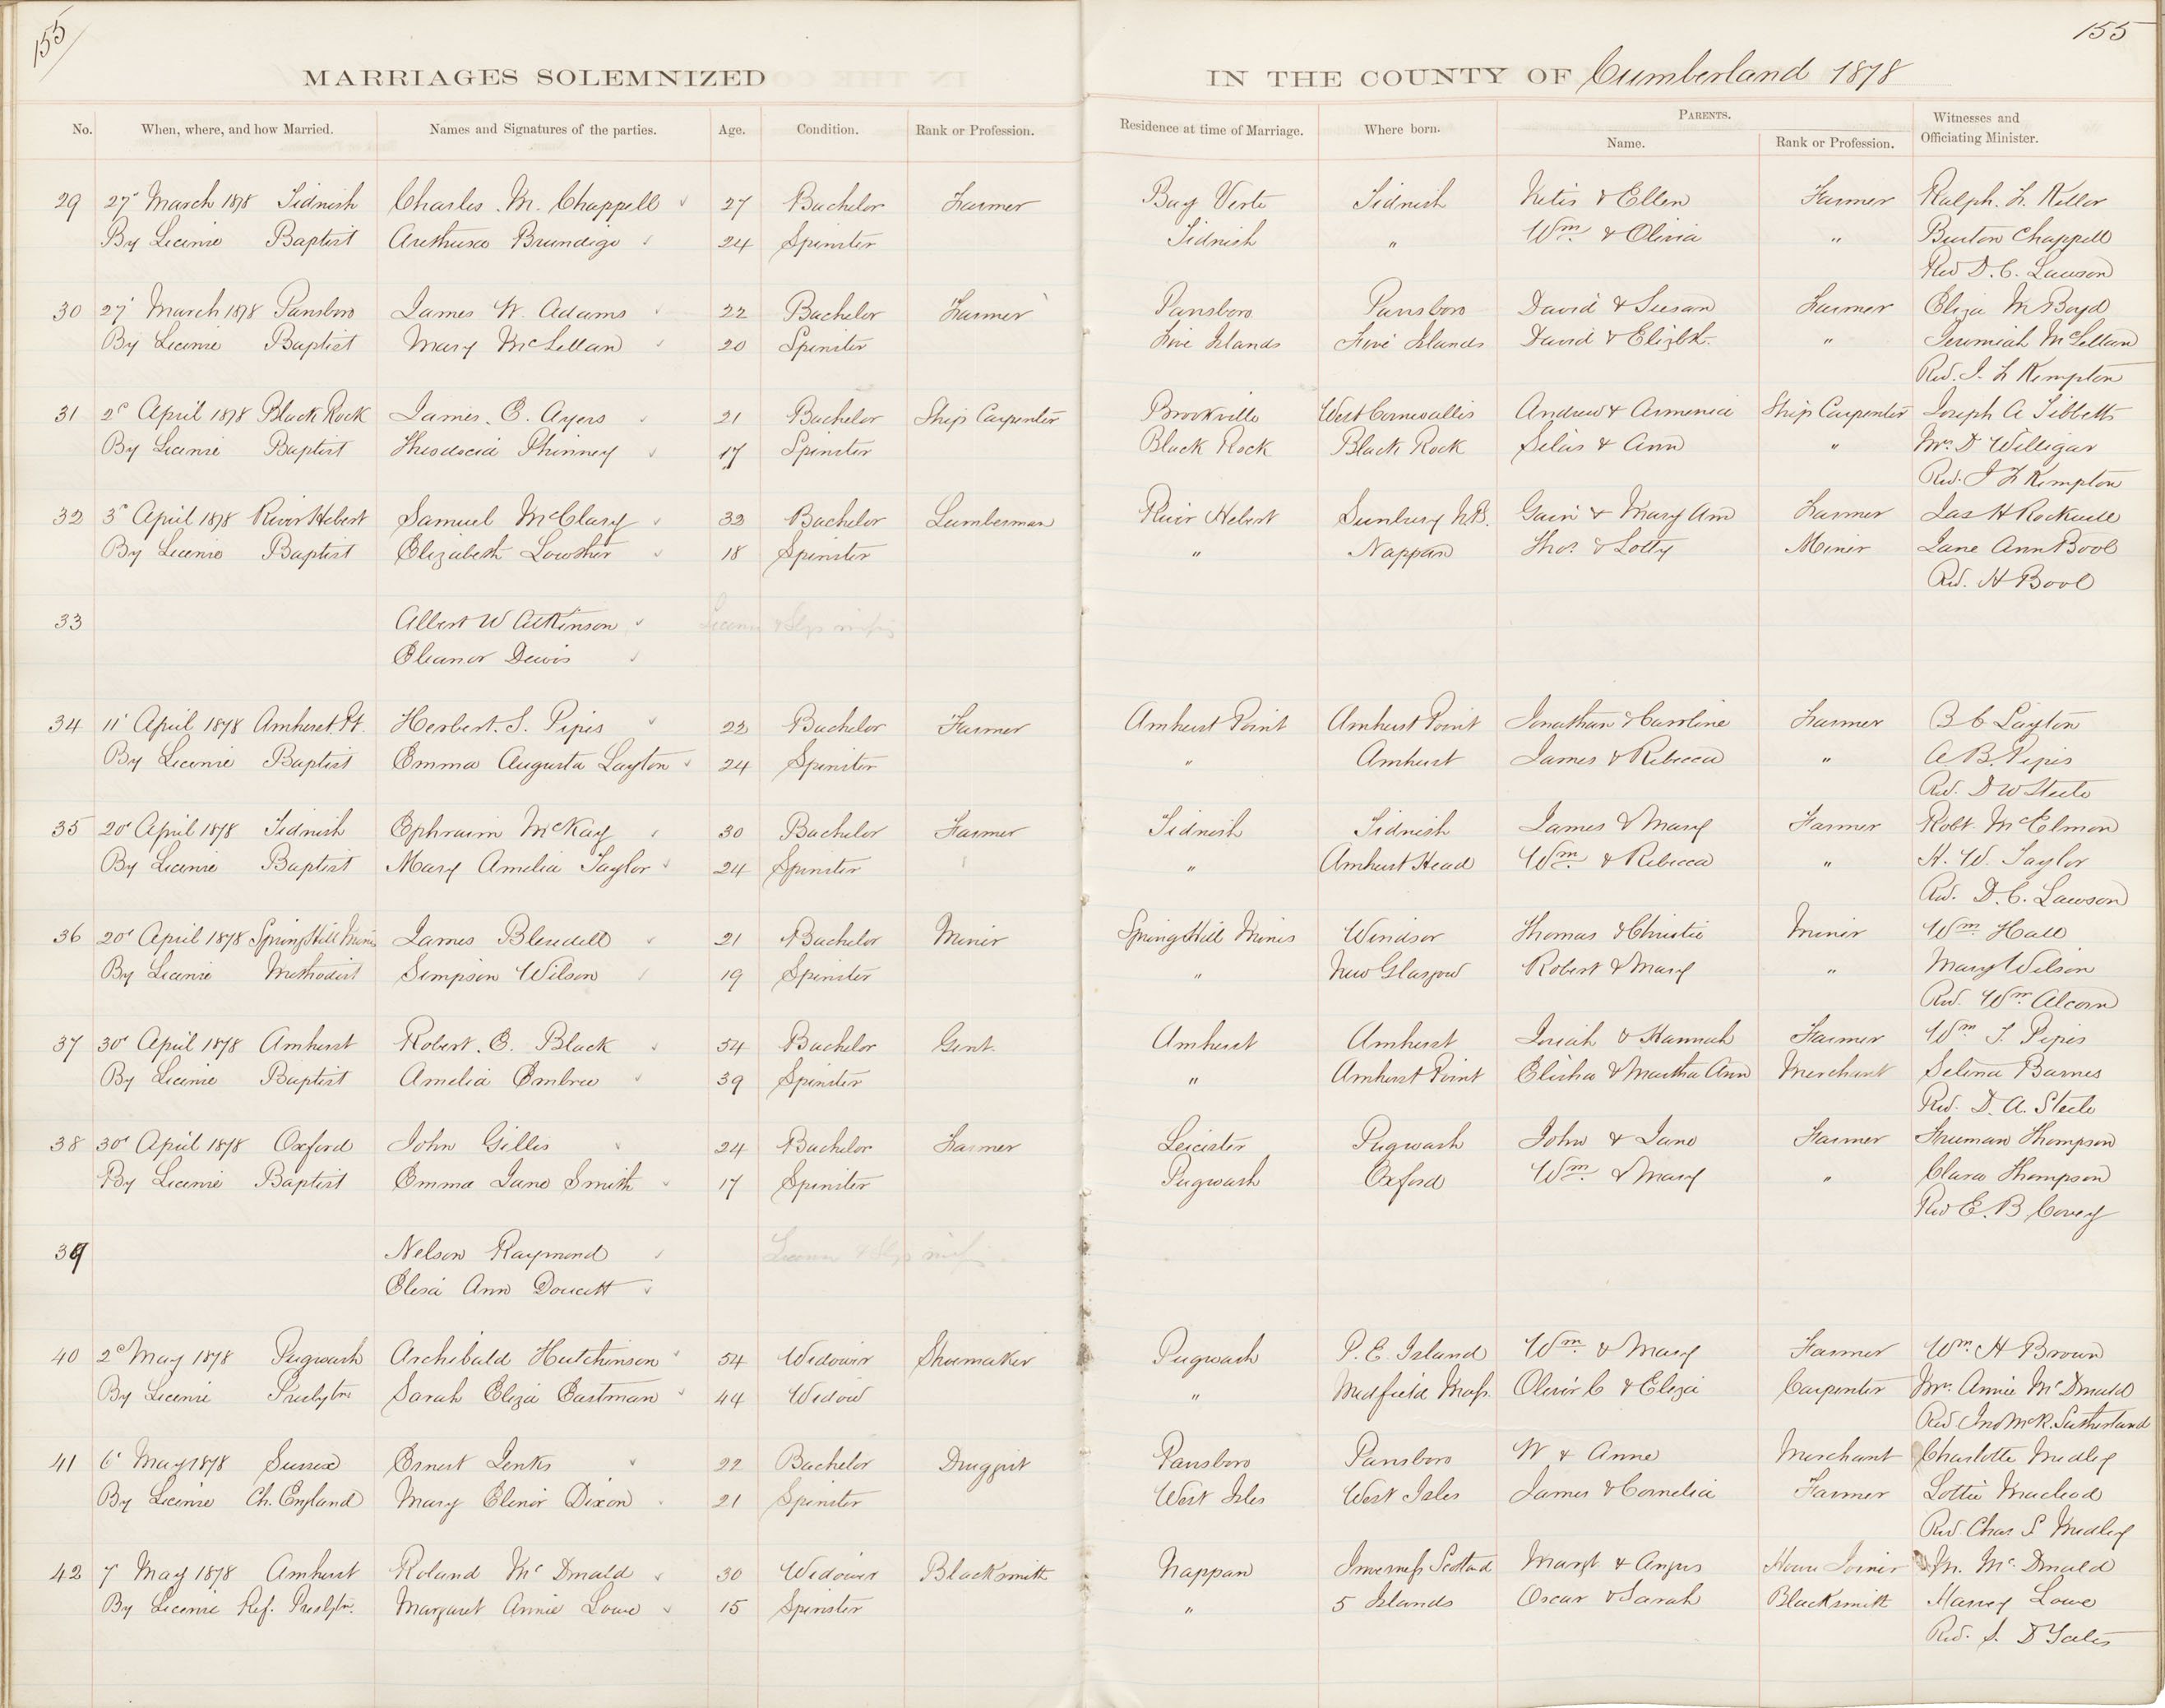 155 155
MARRIAGES SOLEMNIZED IN THE COUNTY OF Cumberland 1878
No. When, where, and how Married. Names and Signatures of the parties. Age. Condition. Rank or Profession. Residence at time of Marriage. Where born. PARENTS. Name. Rank or Profession. Witnesses and Officiating Minister.
29 27" March 1878 Tidnish Charles M. Chappell 27 Bachelor Farmer Bay Verte Tidnish & Ellen Farmer Ralph. L. Keller
By License Baptist Arethusa Brundige 24 Spinster Tidnish " Wm. & Olivia " Burton Chappell
Rev D. C. Lawson
30 27' March 1878 Parrsboro James W. Adams 22 Bachelor Farmer Parrsboro Parrsboro David & Susan Farmer Eliza M Boyd
By License Baptist Mary McLellan 20 Spinster Five Islands Five Islands David & Elizbh. " Jeremiah McLellan
Rev. J. L Kempton
31 2d April 1878 Black Rock James. E. Ayers 21 Bachelor Ship Carpenter Brookville West Cornwallis Andrew & Armenia Ship Carpenter Joseph A Tibbetts
By License Baptist Theodocia Phinney 17 Spinster Black Rock Black Rock Silas & Ann " Mrs. D Willigar
Rev. J L Kempton
32 3" April 1878 River Hebert Samuel McClary 32 Bachelor Lumberman River Hebert Sunbury N.B. & Mary Ann Farmer Jas H Rockwell
By License Baptist Elizabeth Lowther 18 Spinster " Nappan Thos. & Lotty Miner Jane Ann Bool
Rev. H Bool
33 Albert W Atkinson License & Slip missing
Eleanor Dewis
34 11' April 1878 Amherst Pt. Herbert. S. Pipes 22 Bachelor Farmer Amherst Point Amherst Point Jonathan & Caroline Farmer B C Layton
By License Baptist Emma Augusta Layton 24 Spinster " Amherst James & Rebecca " A B. Pipes
Rev. D W Steele
35 20' April 1878 Tidnish Ephraim McKay 30 Bachelor Farmer Tidnish Tidnish James & Mary Farmer Robt. McElmon
By License Baptist Mary Amelia Taylor 24 Spinster " Amherst Head Wm. & Rebecca " H. W. Taylor
Rev. D. C. Lawson
36 20' April 1878 Spring Hill Mines James Blendell 21 Bachelor Miner Spring Hill Mines Windsor Thomas & Christie Miner Wm. Hall
By License Methodist Simpson Wilson 19 Spinster " New Glasgow Robert & Mary " Mary Wilson
Rev. Wm. Alcorn
37 30' April 1878 Amherst Robert. E. Black 54 Bachelor Gent. Amherst Amherst Josiah & Hannah Farmer Wm. T. Pipes
By License Baptist Amelia Embree 39 Spinster " Amherst Point Elisha & Martha Ann Merchant Selina Barnes
Rev. D. A. Steele
38 30' April 1878 Oxford John Gillis 24 Bachelor Farmer Leicester Pugwash John & Jane Farmer Freeman Thompson
By License Baptist Emma Jane Smith 17 Spinster Pugwash Oxford Wm. & Mary " Clara Thompson
Rev E. B Corey
39 Nelson Raymond License & Slip missing
Elisa Ann Doucett
40 2d May 1878 Pugwash Archibald Hutchinson 54 Widower Shoemaker Pugwash P. E. Island Wm. & Mary Farmer Wm. H Brown
By License Presbytn Sarah Eliza Eastman 44 Widow " Medfield Mass. Oliver C & Eliza Carpenter Mrs. Annie McDonald
Rev Jno McK. Sutherland
41 6' May 1878 Sussex Ernest Jenks 22 Bachelor Druggist Parrsboro Parrsboro W & Anne Merchant Charlotte Medley
By License Ch. England Mary Elinor Dixon 21 Spinster West Isles West Isles James & Cornelia Farmer Lottie Macleod
Rev. Chas S Medley
42 7 May 1878 Amherst Roland McDonald 30 Widower Blacksmith Nappan Inverness Scotland Margt & Angus House Joiner M. McDonald
By License Ref. Presbytn. Margaret Annie Lowe 15 Spinster " 5 Islands Oscar & Sarah Blacksmith Harvey Lowe
Rev. S. D Yates